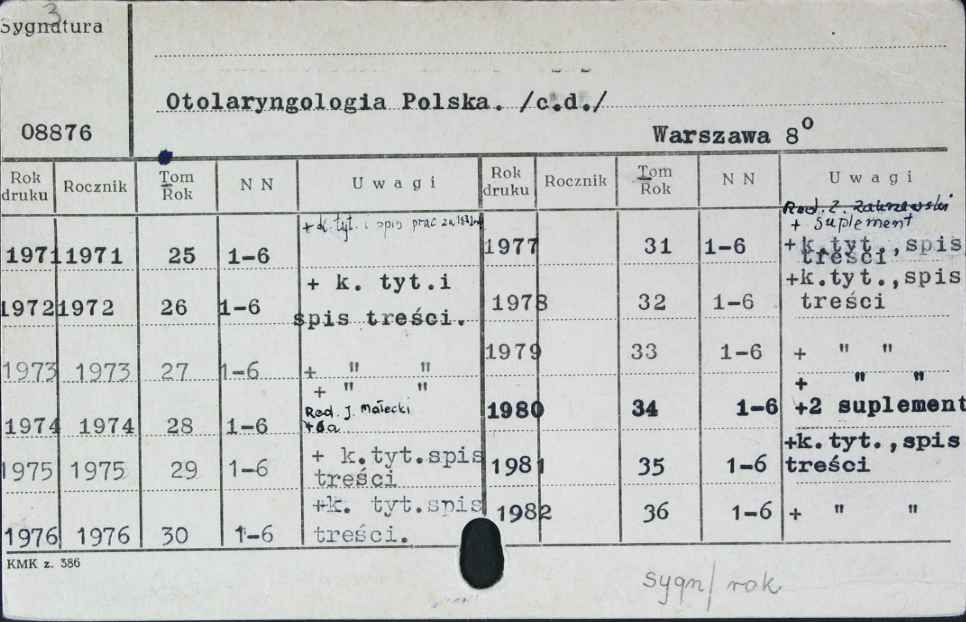 3
Sygnatura
08876
Otolaryngologia Polska. /c.d./
Warszawa 8⁰
Rok druku Rocznik Tom Rok N N U w a g i Rok druku Rocznik Tom Rok N N U w a g i
1971 1971 25 1-6 + k. tyt. i spis prac za
1972 1972 26 1-6 + k. tyt.i
spis treści.
1973 1973 27 1-6 + " "
+ " "
1974 1974 28 1-6 Red. J. Małecki
+6a
1975 1975 29 1-6 + k.tyt.spis
treści
1976 1976 30 1-6 +k. tyt.spis
treści.
Red. Z. Zakrzewski
+ suplement
1977 31 1-6 +k.tyt.,spis
treści,
1978 32 1-6 +k.tyt.,spis
treści
1979 33 1-6 + " "
+ " "
1980 34 1-6 +2 suplement
1981 35 1-6 +k.tyt.,spis
treści
1982 36 1-6 + " "
KMK z. 386
sygn/ rok